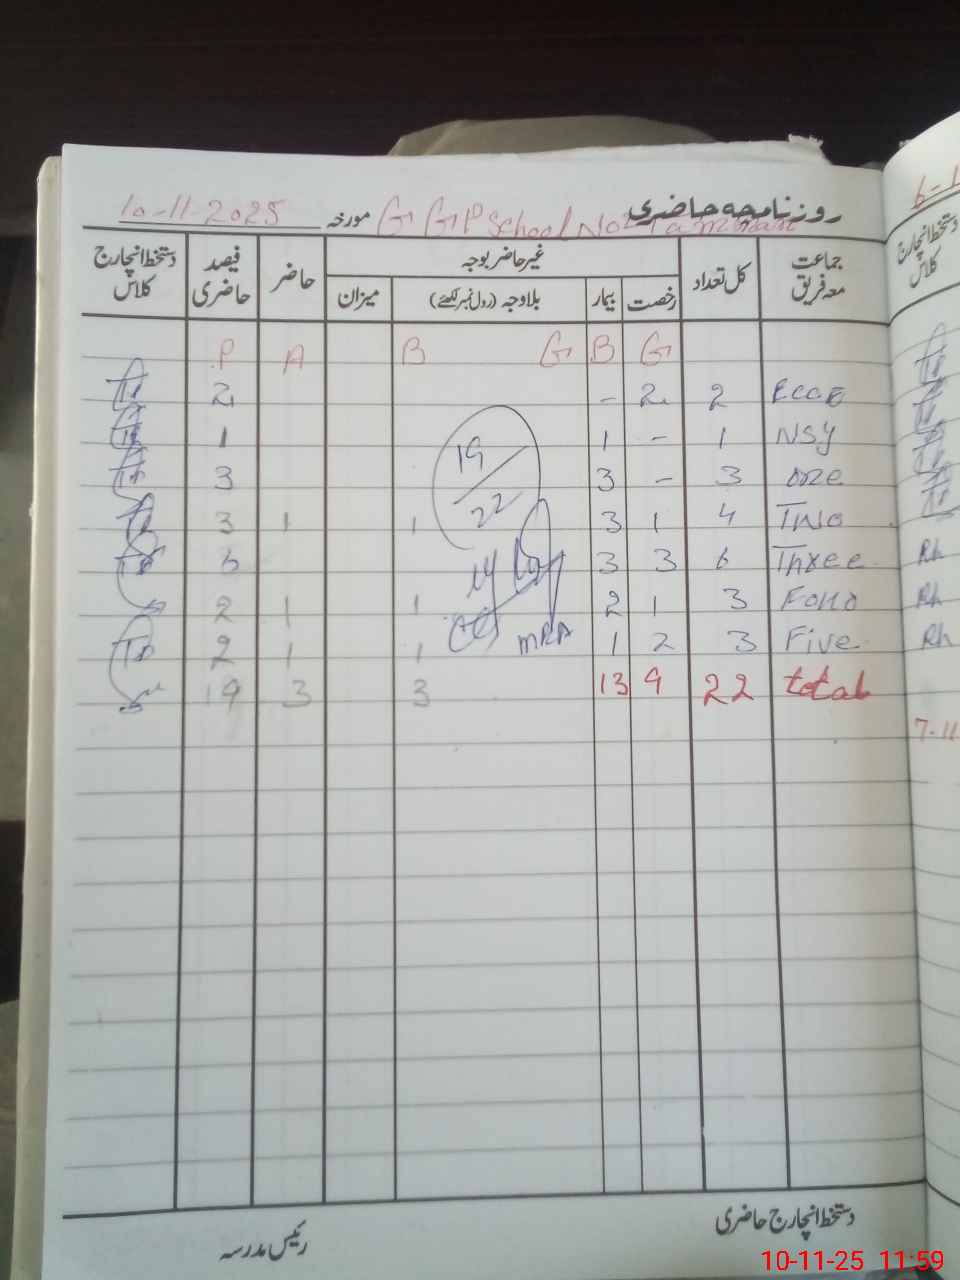 روزنامچہ حاضری G GP School No2 مورخہ 10-11-2025
جماعت معہ فریق کل تعداد غیر حاضر بوجہ حاضر فیصد حاضری دستخط انچارج کلاس
رخصت بیمار بلاوجہ (رول نمبر لکھئے) میزان
P A B G B G
2 - 2 2 ECCE
1 1 - 1 NSY
3 3 - 3 one
3 1 1 3 1 4 Two
3 3 6 Three
2 1 1 2 1 3
2 1 1 1 2 3 Five
19 3 3 13 9 22 total
19/22
MRA
دستخط انچارج حاضری
رئیس مدرسہ
دستخط انچارج کلاس
Rh
Rh
Rh
7-11
10-11-25 11:59